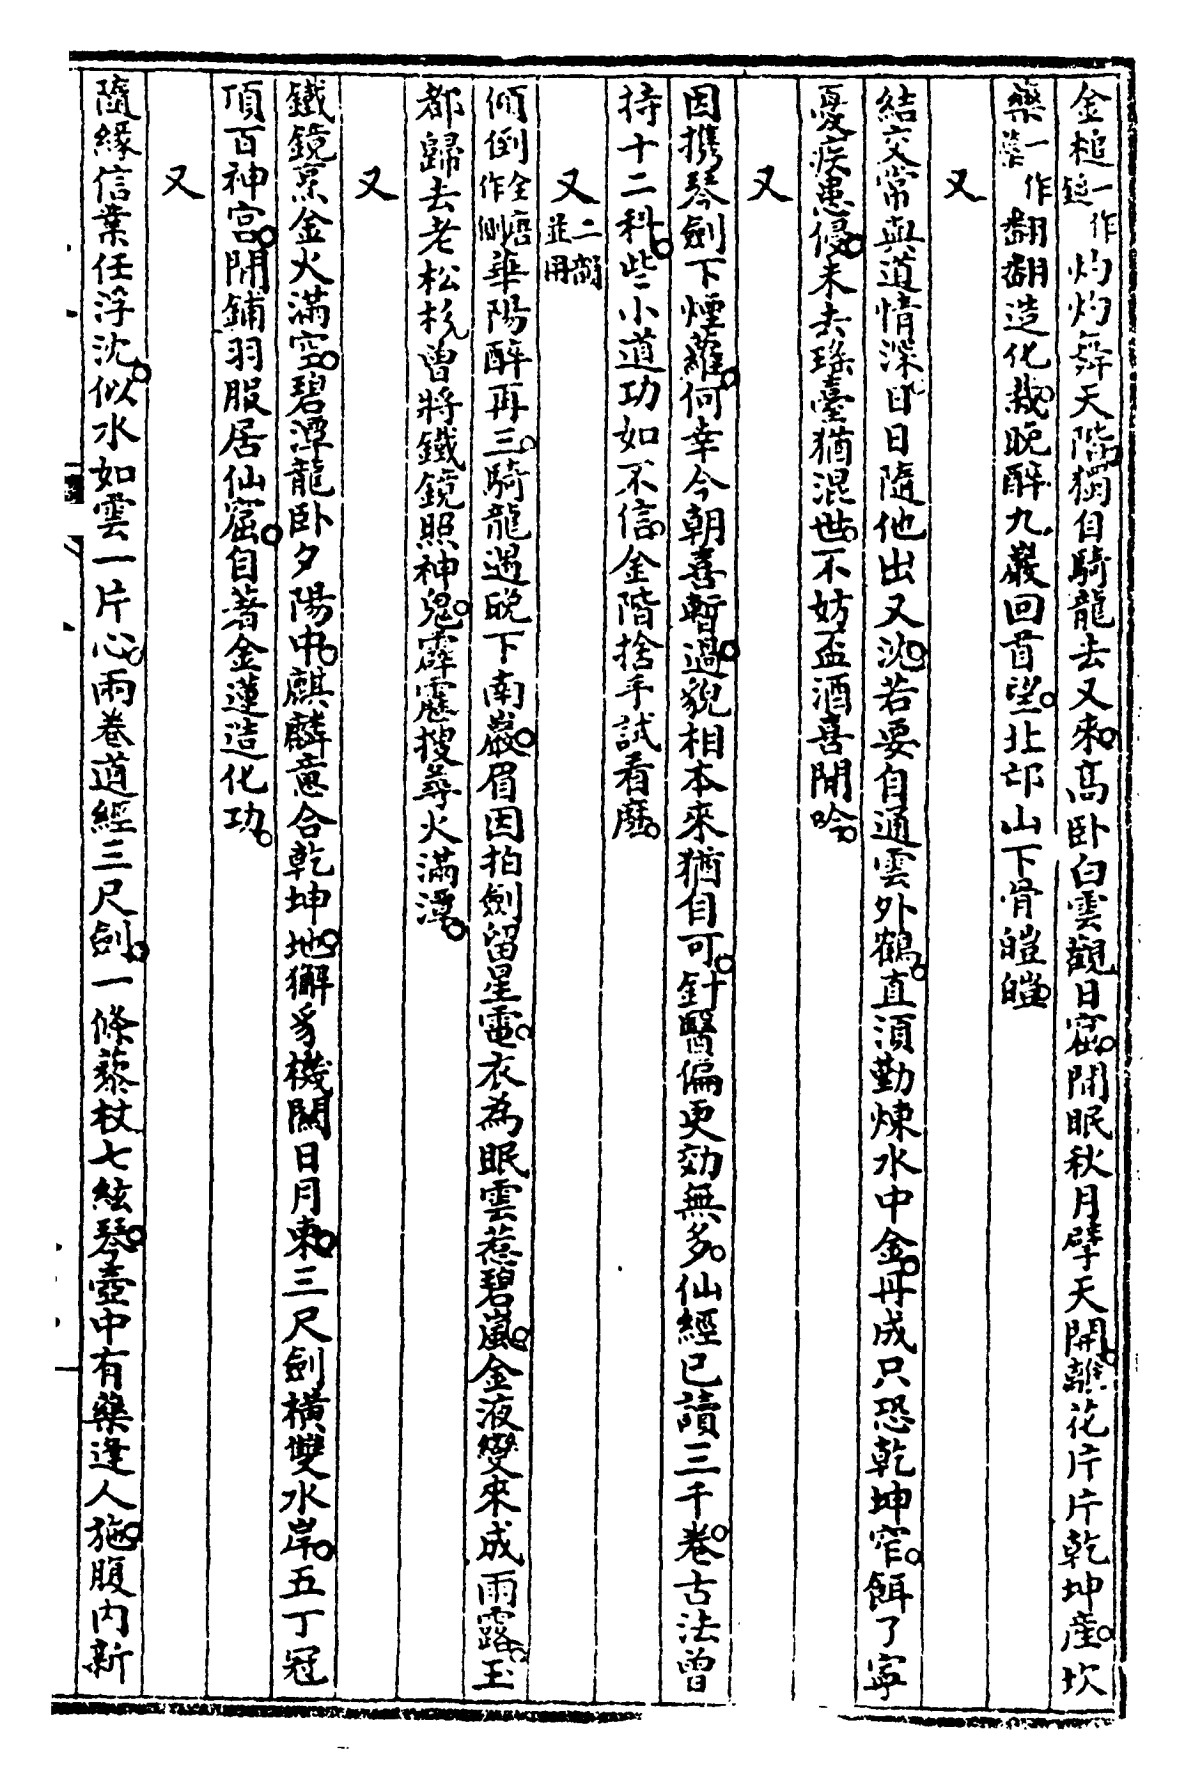 金槌一作鎚灼灼舞天階獨自騎龍去又來髙卧白雲觀日窟閒眠秋月擘天開離花片片乾坤産坎
藥一作蘂翻翻造化栽晚醉九巖回首望北邙山下骨皚皚
又
結交常與道情深日日隨他出又沈若要自通雲外鶴直須勤煉水中金丹成只恐乾坤窄餌了寧
憂疾患侵未去瑶臺猶混世不妨盃酒喜閒吟
又
因携琴劍下煙蘿何幸今朝喜暫過貌相本來猶自可針醫偏更効無多仙經已讀三千卷古法曾
持十二科些小道功如不信金階捨手試看麽
又二韻並用
傾倒全唐作側華陽醉再三騎龍遇晚下南巖眉因拍劍留星電衣為眠雲惹碧嵐金液變來成雨露玉
都歸去老松杉曾將鐵鏡照神鬼霹靂搜尋火滿潭
又
鐵鏡烹金火滿空碧潭龍卧夕陽中麒麟意合乾坤地獬豸機關日月東三尺劍横雙水岸五丁冠
頂百神宮閒鋪羽服居仙窟自著金蓮造化功
又
隨緣信業任浮沈似水如雲一片心兩卷道經三尺劍一條藜杖七絃琴壺中有藥逢人施腹内新